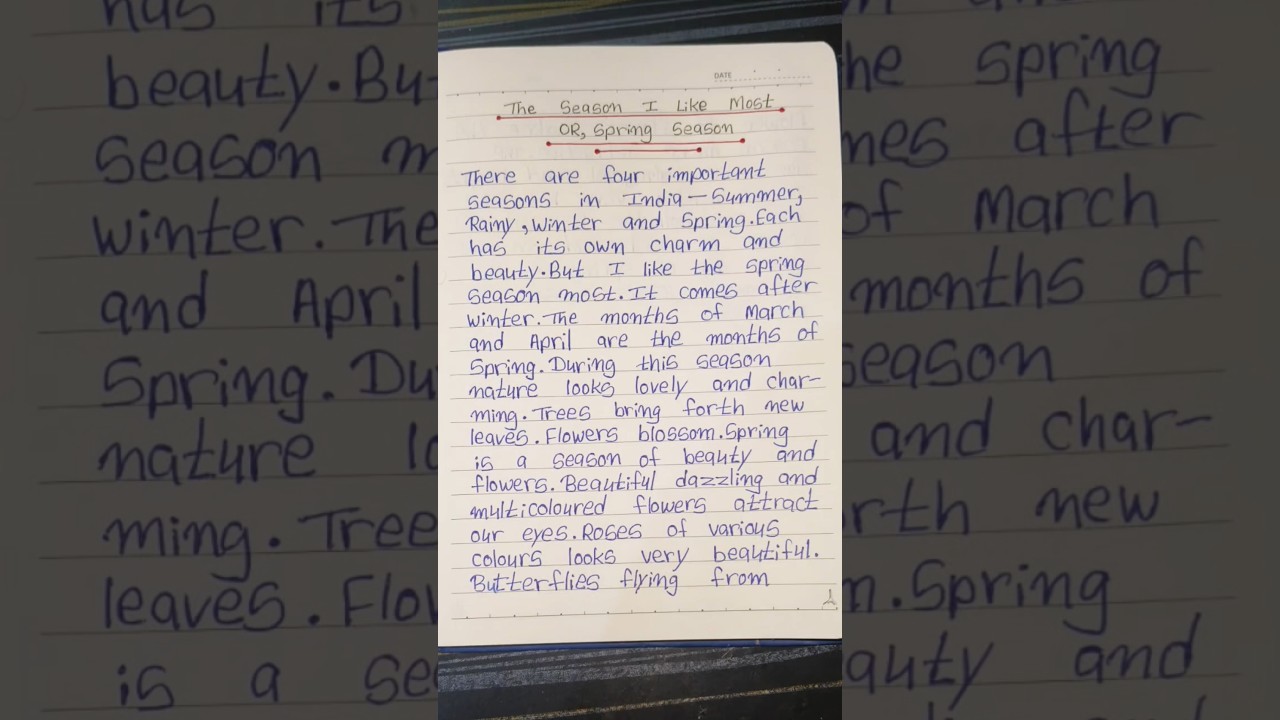 DATE
The Season I Like Most
OR, Spring Season
There are four important
seasons in India – Summer,
Rainy, Winter and Spring. Each
has its own charm and
beauty. But I like the spring
season most. It comes after
winter. The months of March
and April are the months of
Spring. During this season
nature looks lovely and char-
ming. Trees bring forth new
leaves. Flowers blossom. Spring
is a season of beauty and
flowers. Beautiful dazzling and
multicoloured flowers attract
our eyes. Roses of various
colours looks very beautiful.
Butterflies flying from